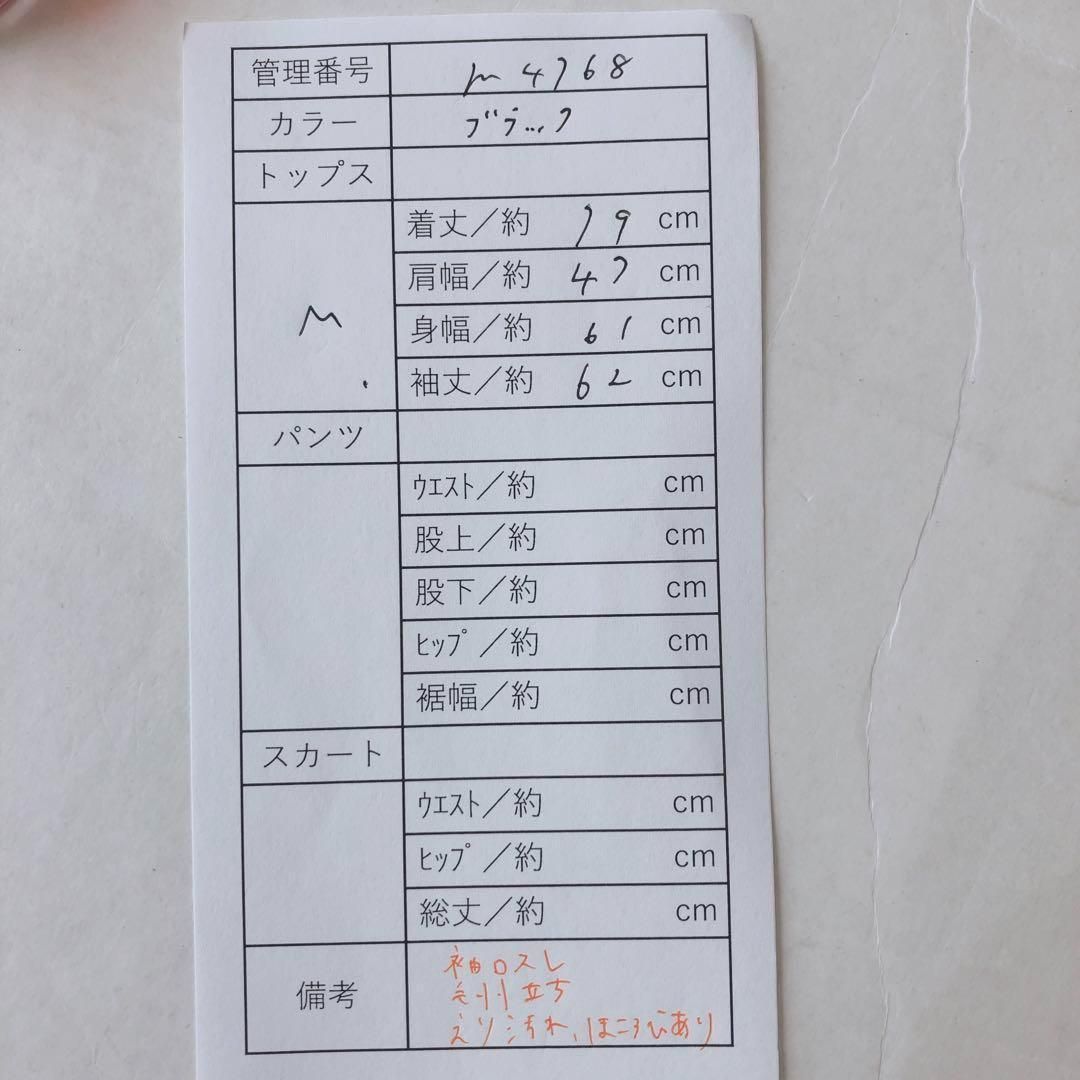 管理番号 M4768
カラー ブラック
トップス
M
着丈／約 79 cm
肩幅／約 47 cm
身幅／約 61 cm
袖丈／約 62 cm
パンツ
ｳｴｽﾄ／約 cm
股上／約 cm
股下／約 cm
ﾋｯﾌﾟ／約 cm
裾幅／約 cm
スカート
ｳｴｽﾄ／約 cm
ﾋｯﾌﾟ／約 cm
総丈／約 cm
備考
袖口スレ
毛羽立ち
えり汚れ、ほころびあり